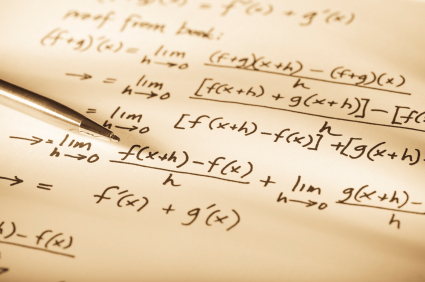 = f'(x) + g'(x)
proof from book:
(f+g)'(x) = lim h→0 (f+g)(x+h) - (f+g)(x) / h
→ = lim h→0 [f(x+h) + g(x+h)] - [f( / h
= lim h→0 [f(x+h) - f(x)] + [g(x+h)-
→ = lim h→0 f(x+h) - f(x) / h + lim h→0 g(x+h) - / h
→ = f'(x) + g'(x)
) - f(x)